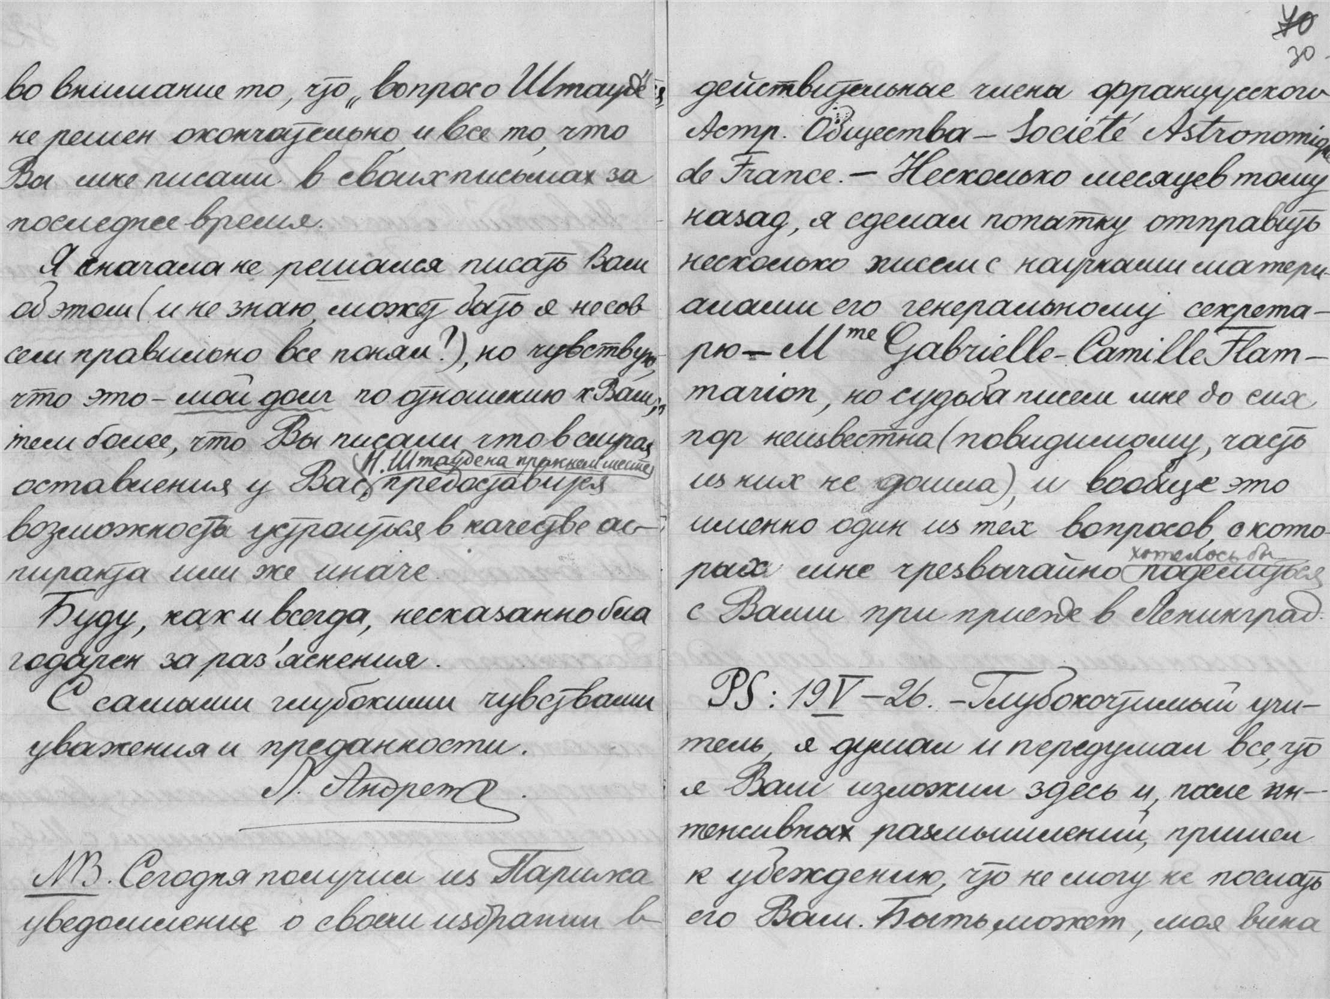 во внимание то, что „вопрос о Штауде"
не решен окончательно, и все то, что
Вы мне писали в своих письмах за
последнее время.
Я сначала не решался писать Вам
об этом (и не знаю, может быть я не сов
сем правильно все понял?), но чувствую,
что это – мой долг по отношению к Вам,
тем более, что Вы писали, что в случае
Н. Штауде на прежнем месте
оставления у Вас, предоставится
возможность устроиться в качестве ас–
пиранта или же иначе
Буду, как и всегда, несказанно бла
годарен за раз'яснения.
С самыми глубокими чувствами
уважения и преданности.
Л. Андренко.
NB. Сегодня получил из Парижа
уведомление о своем избрании в
70
30.
действительные члены французского
Астр. Общества – Société Astronomique
de France. – Несколько месяцев тому
назад, я сделал попытку отправить
несколько писем с научными матери
алами его генеральному секрета–
рю – Mme Gabrielle-Camille Flam–
marion, но судьба писем мне до сих
пор неизвестна (повидимому, часть
из них не дошла), и вообще это
именно один из тех вопросов, о кото
хотелось бы
рых мне чрезвычайно поделиться
с Вами при приезде в Ленинград.
PS: 19 V – 26. – Глубокочтимый учи–
тель, я думал и передумал все, что
я Вам изложил здесь и, после ин–
тенсивных размышлений, пришел
к убеждению, что не могу не послать
его Вам. Быть может, моя вина